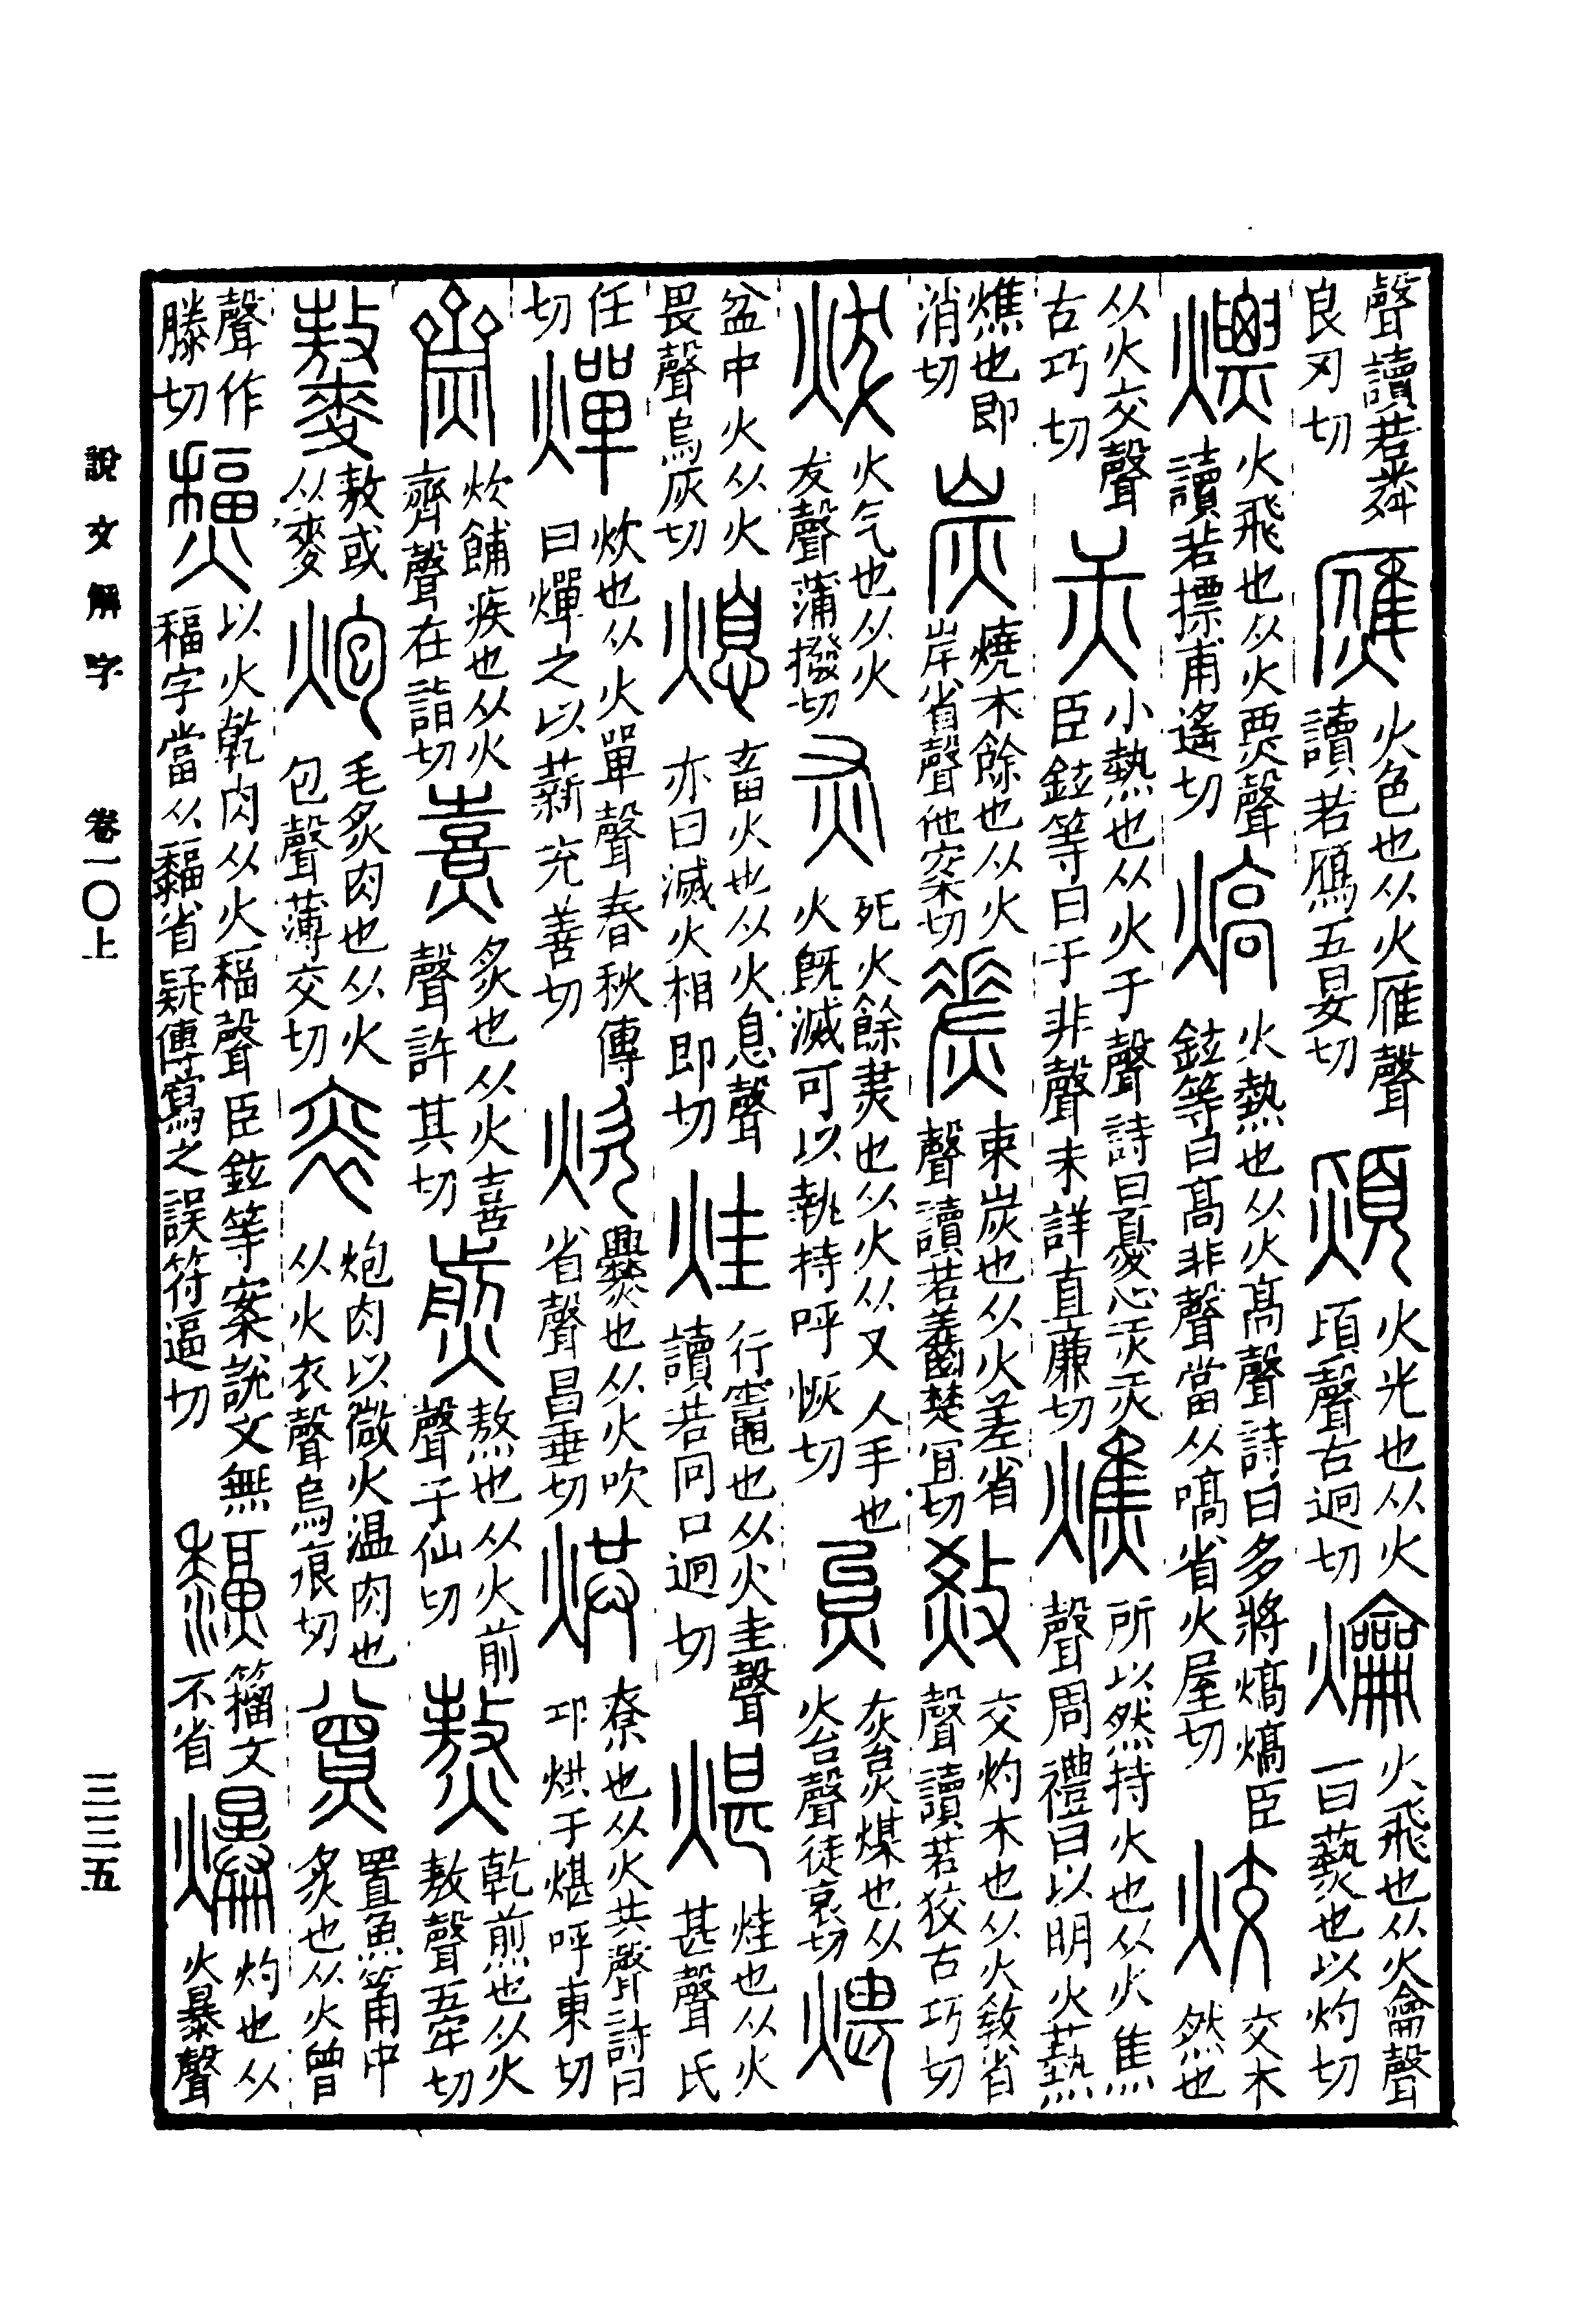 聲讀若粦良刃切 㷼 火色也从火雁聲讀若鴈五晏切 熲 火光也从火頃聲古迥切 爚 火飛也从火龠聲一曰爇也以灼切
熛 火飛也从火票聲讀若摽甫遙切 熇 火熱也从火高聲詩曰多將熇熇臣鉉等曰高非聲當从嗃省火屋切 烄 交木然也
从火交聲古巧切 𤆎 小熱也从火干聲詩曰憂心𤆎𤆎臣鉉等曰干非聲未詳直廉切 燋 所以然持火也从火焦聲周禮曰以明火爇
燋也即消切 炭 燒木餘也从火岸省聲他案切 𤊾 束炭也从火差省聲讀若𪘓楚宜切 㪣 交灼木也从火教省聲讀若狡古巧切
炦 火气也从火犮聲蒲撥切 灰 死火餘㶳也从火从又又手也火既滅可以執持呼恢切 炱 灰炱煤也从火台聲徒哀切 煨
盆中火从火畏聲烏灰切 熄 畜火也从火息聲亦曰滅火相即切 烓 行竈也从火圭聲讀若冋口迥切 煁 烓也从火甚聲氏
任切 燀 炊也从火單聲春秋傳曰燀之以薪充善切 炊 爨也从火吹省聲昌垂切 烘 尞也从火共聲詩曰卬烘于煁呼東切
齌 炊餔疾也从火齊聲在詣切 熹 炙也从火喜聲許其切 煎 熬也从火前聲子仙切 熬 乾煎也从火敖聲五牢切
熬或从麥 炮 毛炙肉也从火包聲薄交切 炮肉以微火温肉也从火衣聲烏痕切 置魚筩中炙也从火曾
聲作滕切 以火乾肉从火稫聲臣鉉等案說文無稫字當从䵗省疑傳寫之誤符逼切 籀文不省 爆 灼也从火暴聲
說文解字 卷一〇上 三三五